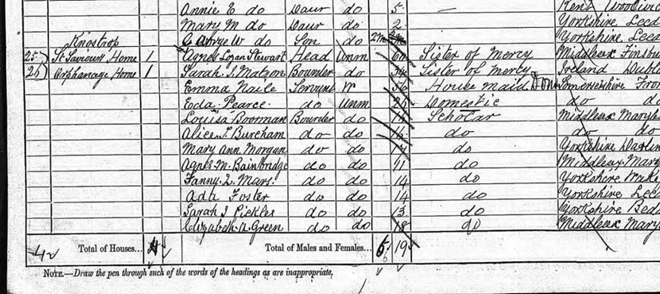 Annie E do Daur do 5 Kent
Mary M do Daur do 2 Yorkshire Leed
Knostrop George W do Son do Yorkshire Leed
25 St Saviours Home 1 Agnes Logan Stewart Head Unm 60 Sister of Mercy Middlesex Finsbu
26 Orphanage Home 1 Sarah J. Matson Boarder do Sister of Mercy Ireland Dubl
Emma Servant House maid Dom Somersetshire
Eda Pearce do Unm Domestic do do
Louisa Boorman Boarder do Scholar Middlesex Maryl
Alice Burcham do do do do do
Mary Ann Morgan do do do Yorkshire
Agnes M. Bainbridge do do 11 do Middlesex Mary
Fanny L. Mars. do do 14 do Yorkshire
Ada Foster do do 14 do Yorkshire Leed
Sarah J Pickles do do 13 do Yorkshire
Elizabeth A Green do do do Middlesex Mary
Total of Houses... Total of Males and Females... 19
NOTE.—Draw the pen through such of the words of the headings as are inappropriate.